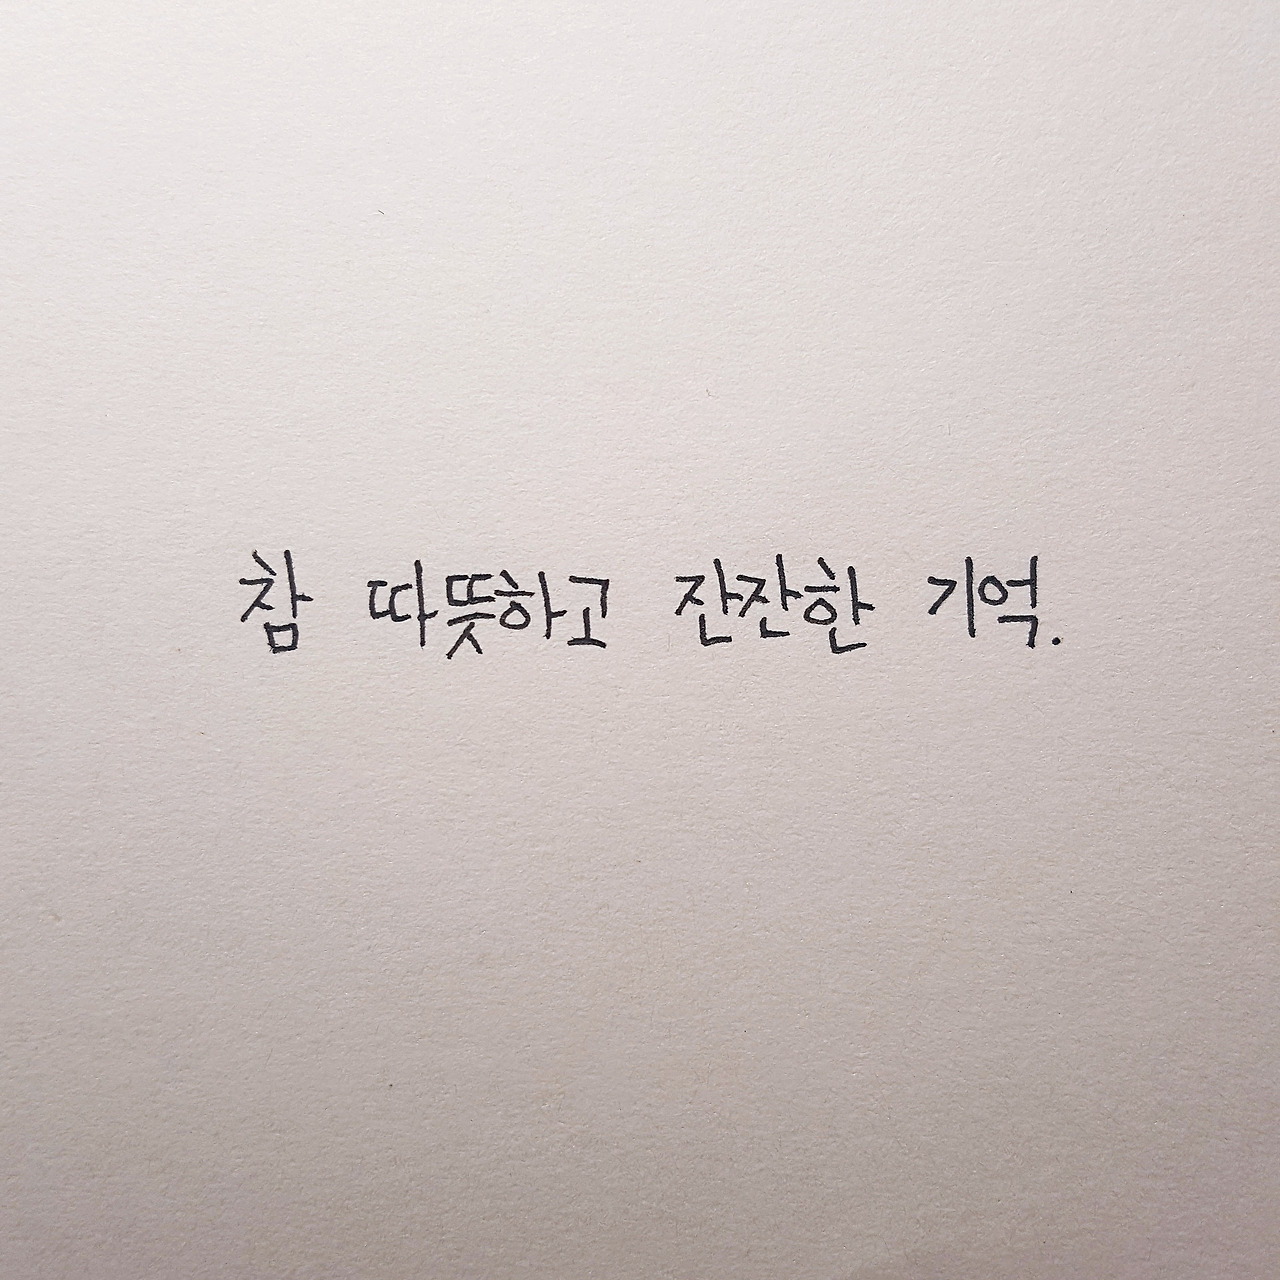 참 따뜻하고 잔잔한 기억.